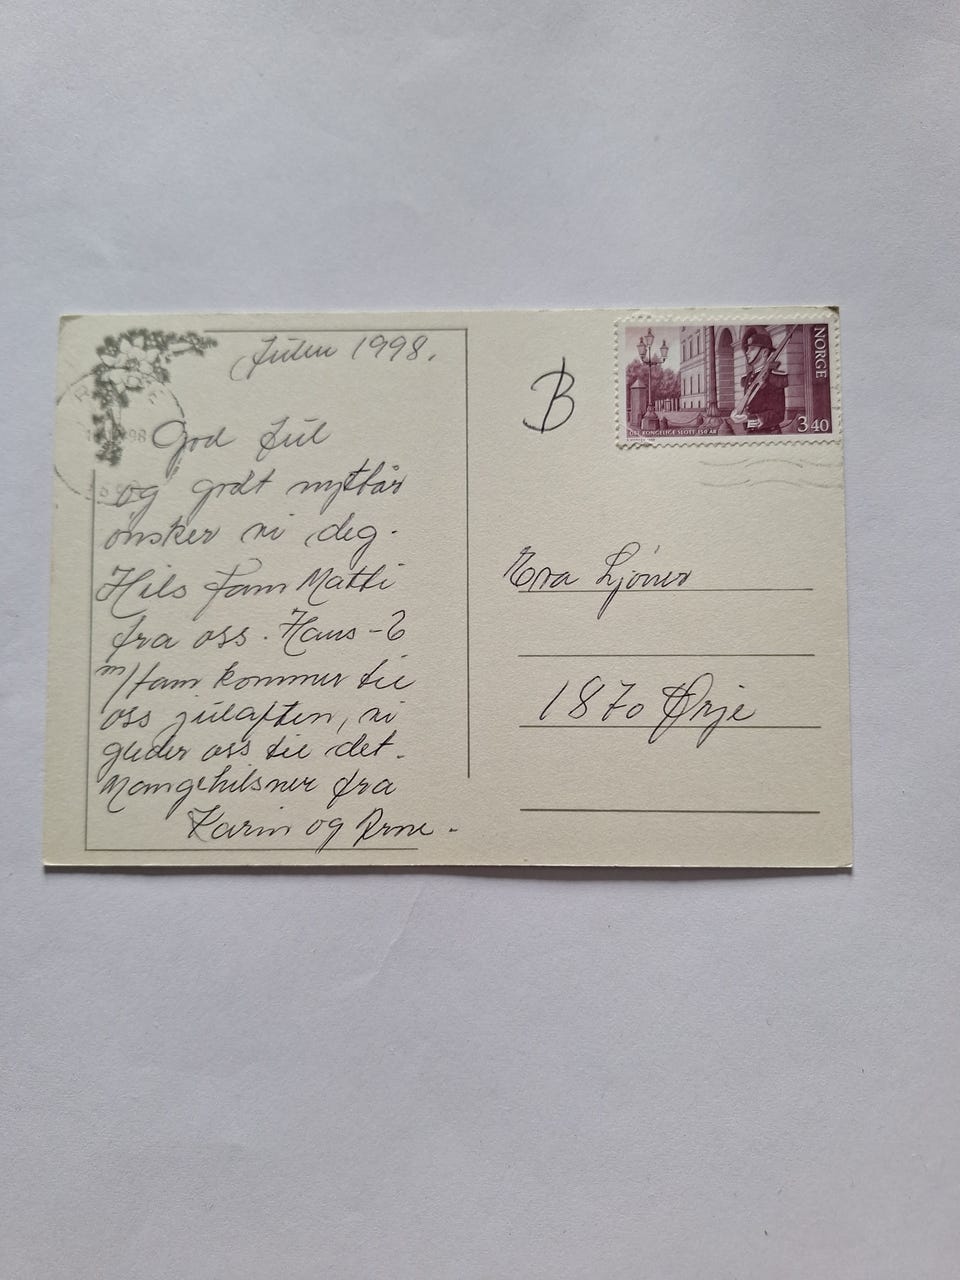 Julen 1998.
God Jul
og godt nyttår
ønsker vi deg.
Hils fam Matti
fra oss. Hans-
m/fam kommer til
oss julaften, vi
gleder oss til det.
Mange hilsner fra
Karin og Arne.
B
NORGE
DET KONGELIGE SLOTT 150 ÅR
3.40
98
1870 Ørje